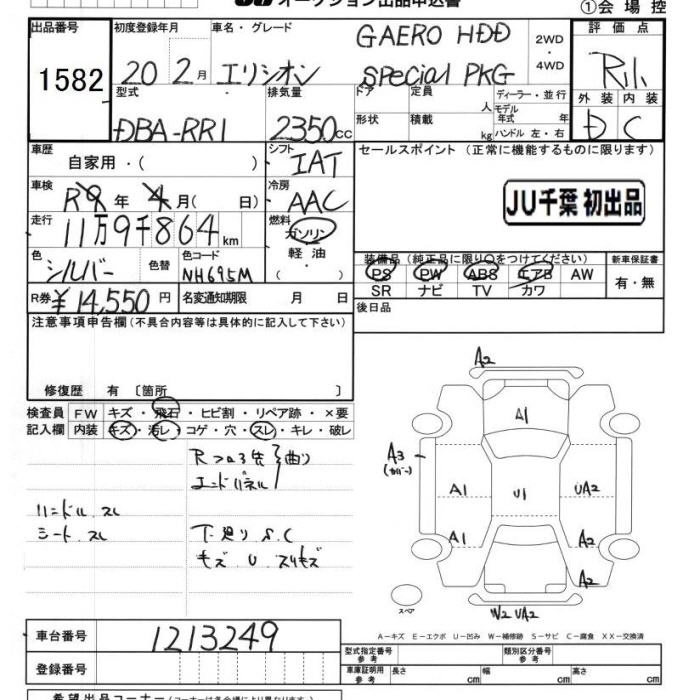 オークション出品申込書
①会場控
出品番号
1582
初度登録年月
20 2月
車名・グレード
エリシオン
GAERO HDD
special PKG
2WD
・
4WD
評価点
R1
外装 内装
D C
型式
DBA-RR1
排気量
2350cc
ドア
形状
定員 人
積載 kg
ディーラー・並行
モデル
年式 年
ハンドル 左・右
車歴
自家用・( )
シフト
IAT
セールスポイント (正常に機能するものに限ります)
JU千葉 初出品
車検
R9年 4月( 日)
冷房
AAC
走行
11万9千864km
燃料
ガソリン
軽油
( )
色
シルバー
色替
色コード
NH695M
装備品 (純正品に限り○をつけてください)
PS PW ABS エアB AW
SR ナビ TV カワ
新車保証書
有・無
R券 ¥14,550 円
名変通知期限 月 日
後日品
注意事項申告欄(不具合内容等は具体的に記入して下さい)
修復歴 有 〔箇所 〕
検査員
記入欄
FW キズ・飛石・ヒビ割・リペア跡・×要
内装 キズ・汚レ・コゲ・穴・スレ・キレ・破レ
エンドパネル
曲り
ハンドル スレ
シート スレ
下廻り S.C
キズ U スリキズ
A2
A1
A3
(カバー)
A1
U1
UA2
A1
A2
A2
スペア
W2 UA2
A－キズ E－エクボ U－凹み W－補修跡 S－サビ C－腐食 XX－交換済
車台番号
1213249
登録番号
型式指定番号
参考
類別区分番号
参考
車庫証明用
参考
長さ cm
幅 cm
高さ cm
希望出品コーナー